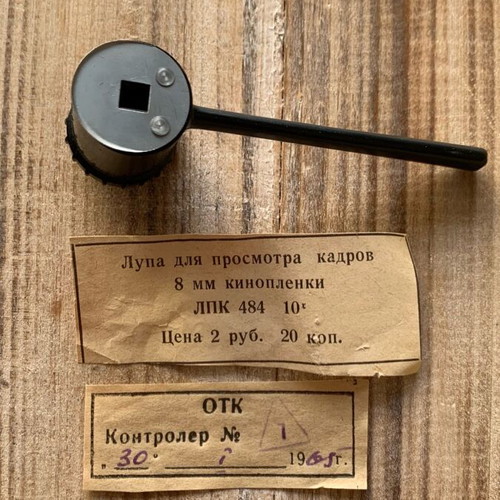 Лупа для просмотра кадров
8 мм кинопленки
ЛПК 484 10ˣ
Цена 2 руб. 20 коп.
ОТК
Контролер № 1
„30" I 196 г.